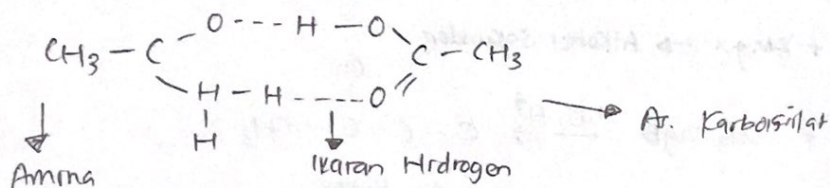 O --- H - O
CH3 - C C - CH3
H - H ---- O
H
Amina
Ikatan Hidrogen
As. Karboksilat